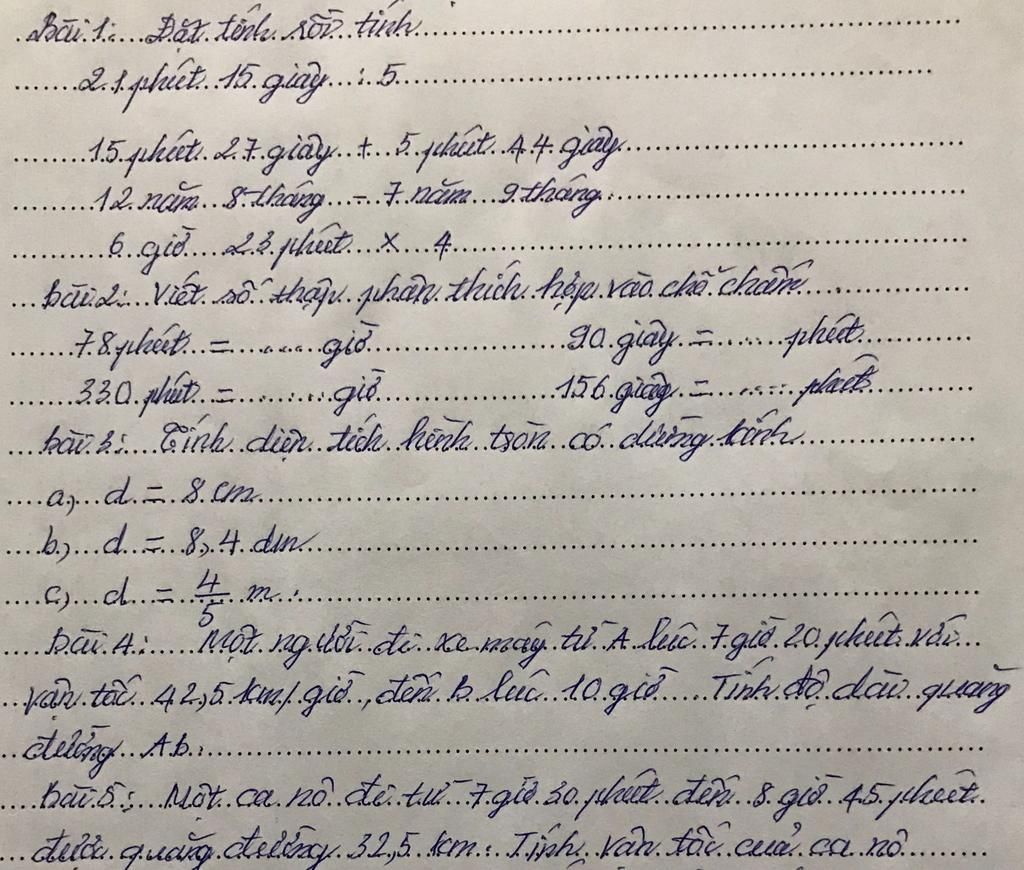 Bài 1: Đặt tính rồi tính
21 phút 15 giây : 5
15 phút 27 giây + 5 phút 44 giây
12 năm 8 tháng - 7 năm 9 tháng
6 giờ 23 phút x 4
Bài 2: Viết số thập phân thích hợp vào chỗ chấm
78 phút = ...... giờ 90 giây = ...... phút
330 phút = ...... giờ 156 giây = ...... phút
Bài 3: Tính diện tích hình tròn có đường kính
a, d = 8 cm
b, d = 8,4 dm
c, d = 4/5 m
Bài 4: Một người đi xe máy từ A lúc 7 giờ 20 phút với
vận tốc 42,5 km/giờ, đến B lúc 10 giờ. Tính độ dài quãng
đường AB.
Bài 5: Một ca nô đi từ 7 giờ 30 phút đến 8 giờ 45 phút
được quãng đường 32,5 km. Tính vận tốc của ca nô